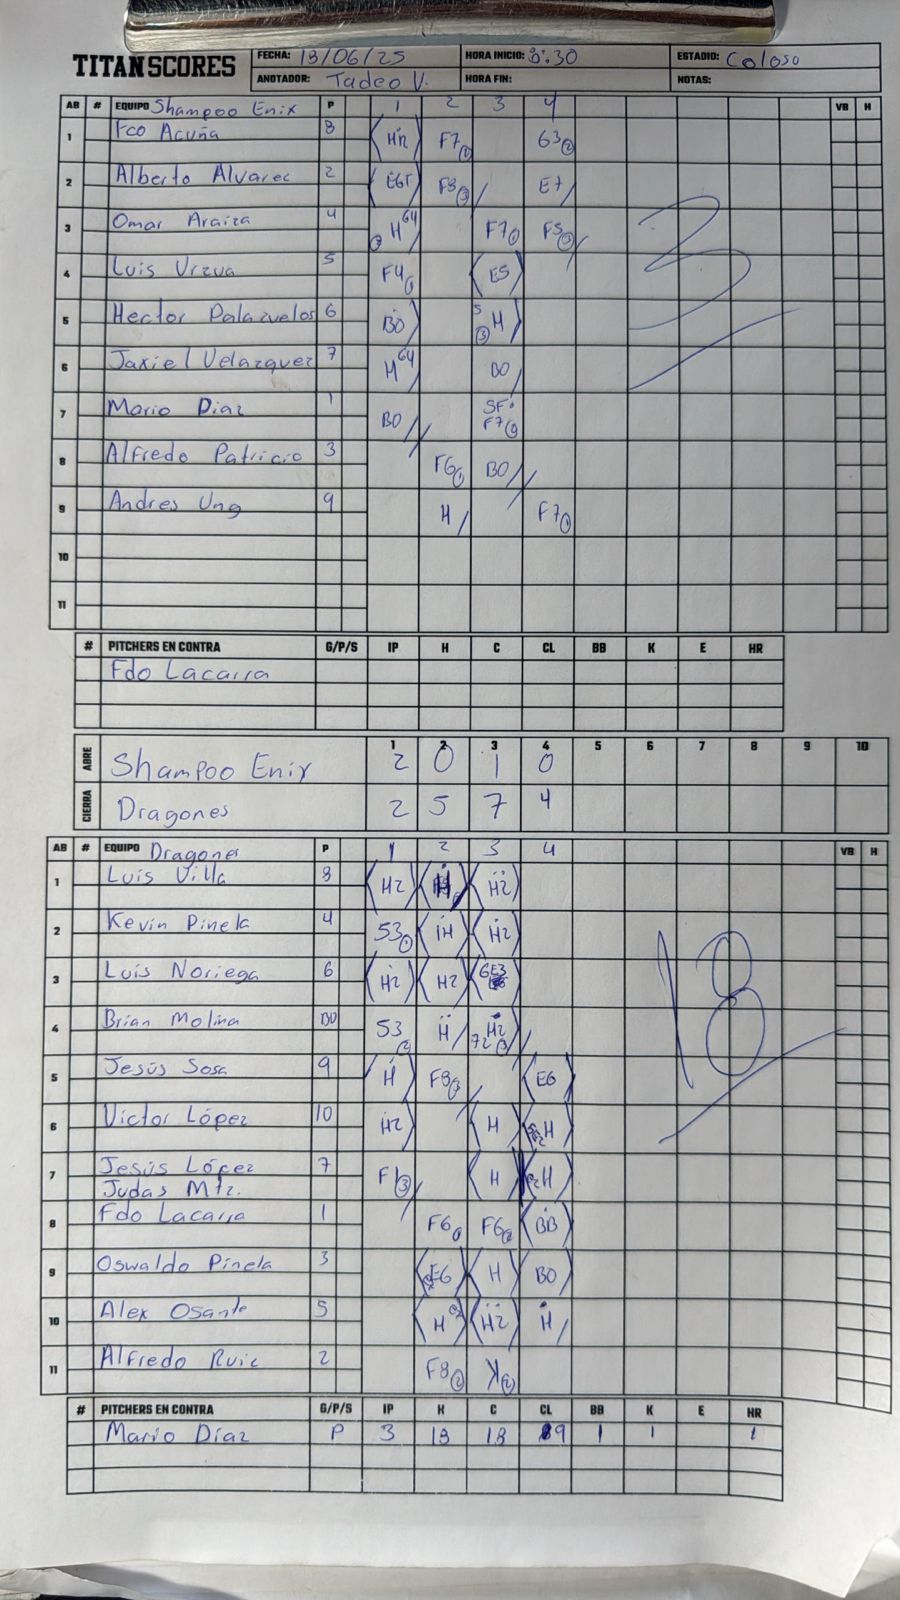 TITAN SCORES
FECHA: 13/06/25 HORA INICIO: 8:30 ESTADIO: Coloso
ANOTADOR: Tadeo V. HORA FIN: NOTAS:
AB # EQUIPO Shampoo Enix P 1 2 3 4 VB H
1 Fco Acuña 8 F7② 63②
2 Alberto Alvarec 2 E6T F8③ E7
3 Omar Araiza 4 H64 F7① F5③
4 Luis Urzua 5 F4① E5
5 Hector Palazuelos 6 BO 5③ H
6 Jaxiel Velazquez 7 H64 BO
7 Mario Diaz 1 BO SF F7②
8 Alfredo Patricio 3 F6① BO
9 Andres Ung 9 H F7①
10
11
3
# PITCHERS EN CONTRA G/P/S IP H C CL BB K E HR
Fdo Lacarra
1 2 3 4 5 6 7 8 9 10
ABRE Shampoo Enix 2 0 1 0
CIERRA Dragones 2 5 7 4
AB # EQUIPO Dragones P 1 2 3 4 VB H
1 Luis Villa 8 H2 H H2
2 Kevin Pinela 4 53① H H2
3 Luis Noriega 6 H2 H2 6E3
4 Brian Molina BD 53② H H2 72③
5 Jesús Sosa 9 H F8③ E6
6 Victor López 10 H2 H H
7 Jesús López 7 F1③ H H
Judas Mtz.
8 Fdo Lacarra 1 F6① F6① BB
9 Oswaldo Pinela 3 E6 H BO
10 Alex Osante 5 H H2 H
11 Alfredo Ruic 2 F8② K②
18
# PITCHERS EN CONTRA G/P/S IP H C CL BB K E HR
Mario Diaz P 3 18 18 9 1 1 1